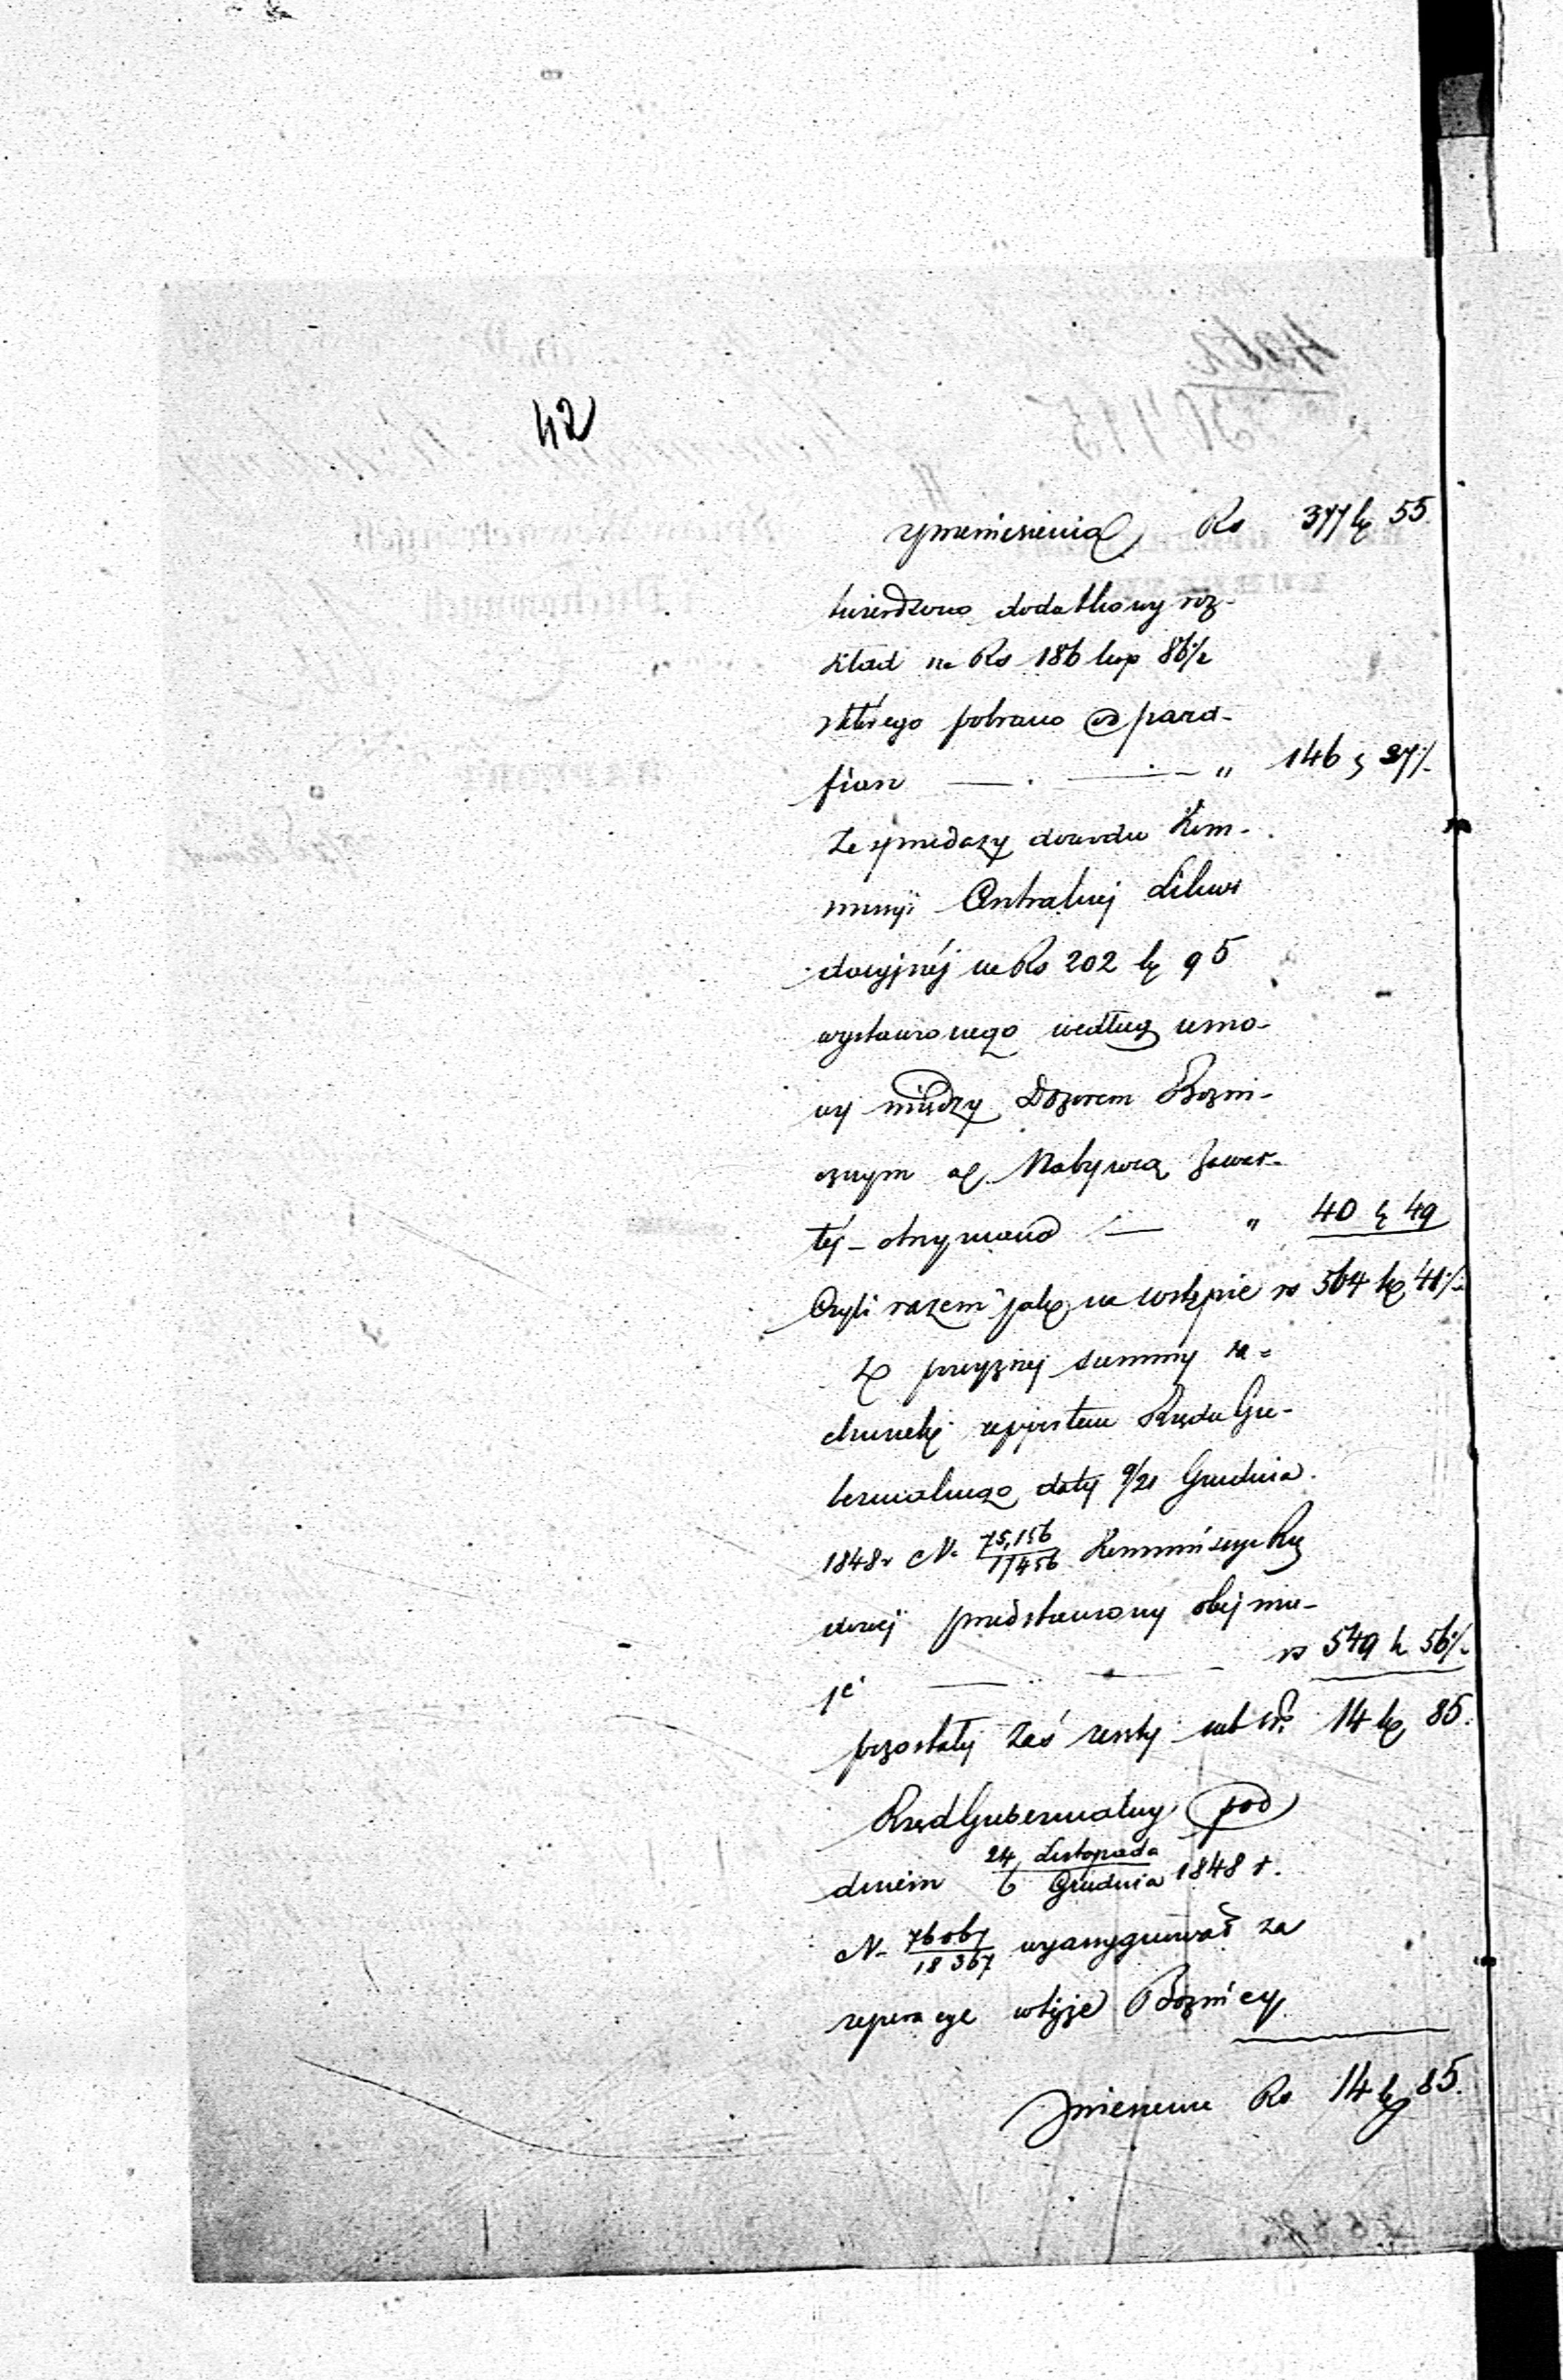 42
z przeniesienia Rs 377 k 55.
twierdzono dodatkowy roz-
kład na Rs 186 kop 86½
z którego pobrano od para-
fian — — " 146 k 37½
Ze sprzedaży dowodu Kom-
missyi Centralnej Likwi
dacyjnéj na Rs 202 k 95
wystawionego według umo-
wy między Dozorem Bożni-
cznym a Nabywcą zawar-
téj – otrzymano — " 40 k 49
Czyli razem jak na wstępie rs 564 k 41½
Z powyższej summy ra=
chunek reportem Rządu Gu-
bernialnego daty 9/21 Grudnia
1848 r N. 75,156/17456 Kommissyi Rzą
dowej przedstawiony obejmu-
je — — rs 549 k 56½
pozostałej zaś reszty rs 14 k 85.
Rząd Gubernialny pod
dniem 24 Listopada/6 Grudnia 1848 r.
N. 76067/18367 wyassygnował za
reperacye tejże Bożnicy
Rs 14 k 85.